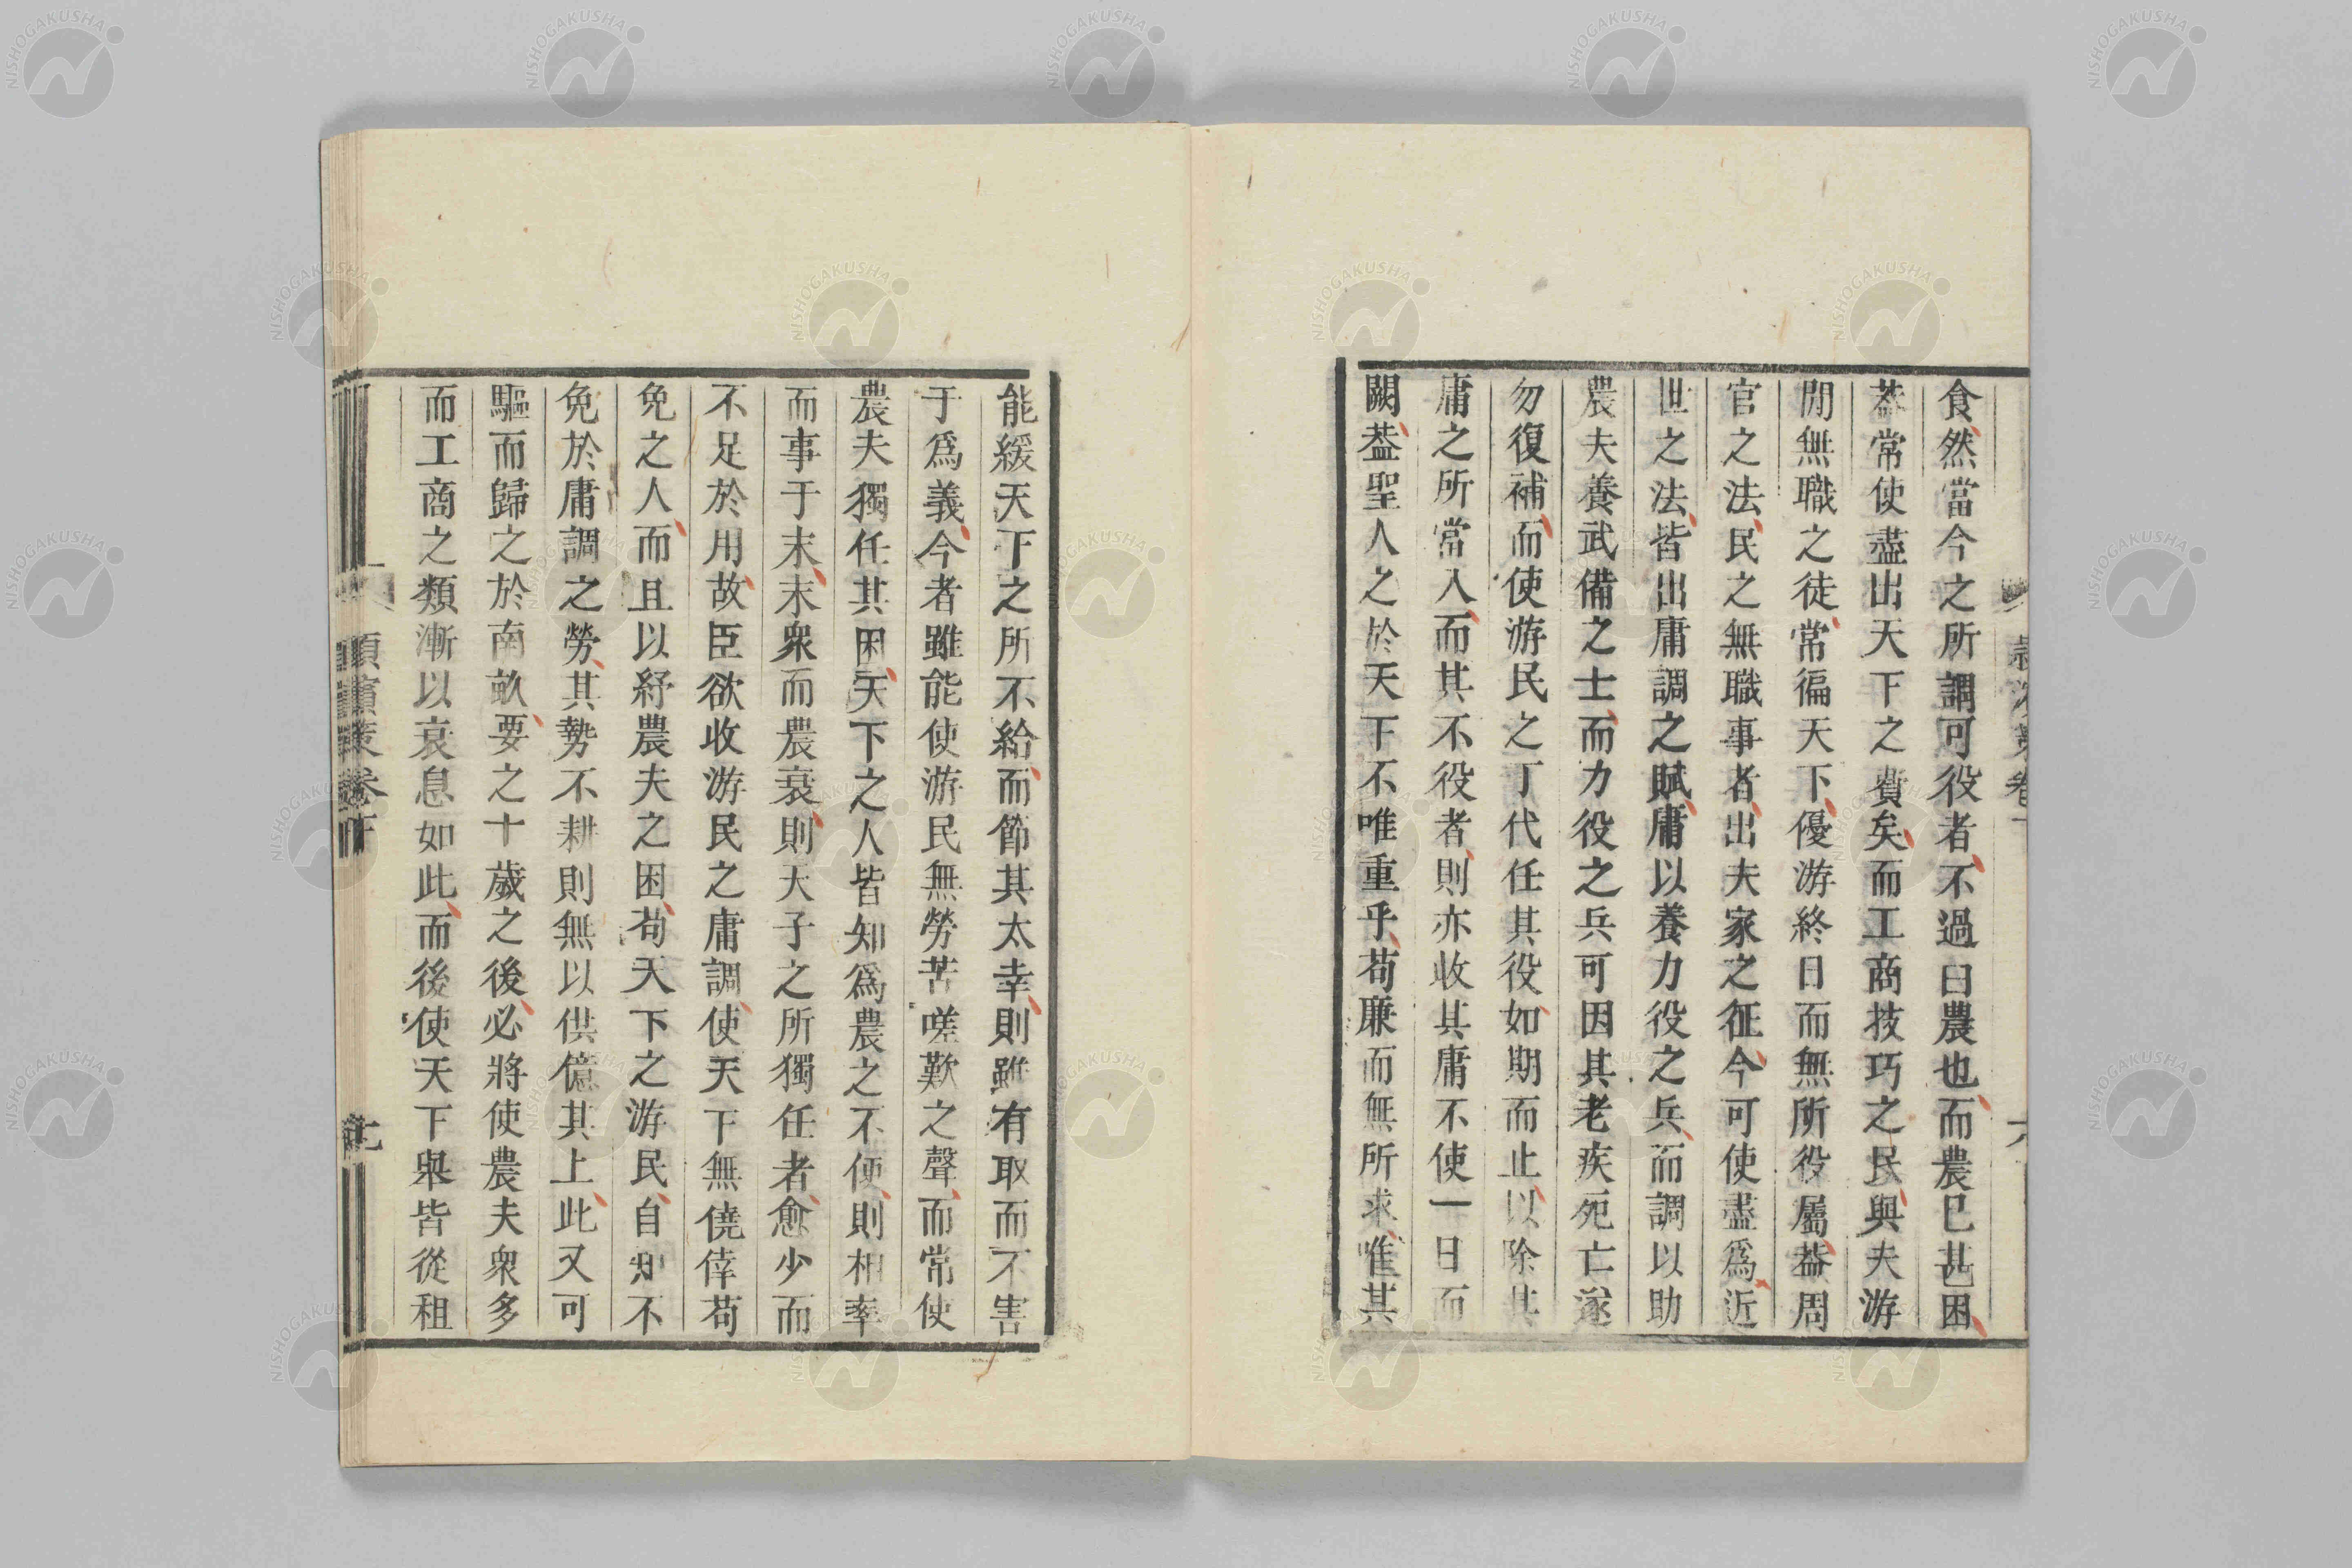 食然當今之所謂可役者不過曰農也而農已甚困
葢常使盡出天下之費矣而工商技巧之民與夫游
閒無職之徒常徧天下優游終日而無所役屬葢周
官之法民之無職事者出夫家之征今可使盡爲近
世之法皆出庸調之賦庸以養力役之兵而調以助
農夫養武備之士而力役之兵可因其老疾死亡遂
勿復補而使游民之丁代任其役如期而止以除其
庸之所當入而其不役者則亦收其庸不使一日而
闕葢聖人之於天下不唯重乎苟廉而無所求唯其
能緩天下之所不給而節其太幸則雖有取而不害
于爲義今者雖能使游民無勞苦嗟歎之聲而常使
農夫獨任其困天下之人皆知爲農之不便則相率
而事于末末衆而農衰則天子之所獨任者愈少而
不足於用故臣欲收游民之庸調使天下無僥倖苟
免之人而且以紓農夫之困苟天下之游民自知不
免於庸調之勞其勢不耕則無以供億其上此又可
驅而歸之於南畝要之十歲之後必將使農夫衆多
而工商之類漸以衰息如此而後使天下舉皆從租
潁濱策卷下
七
NISHOGAKUSHA